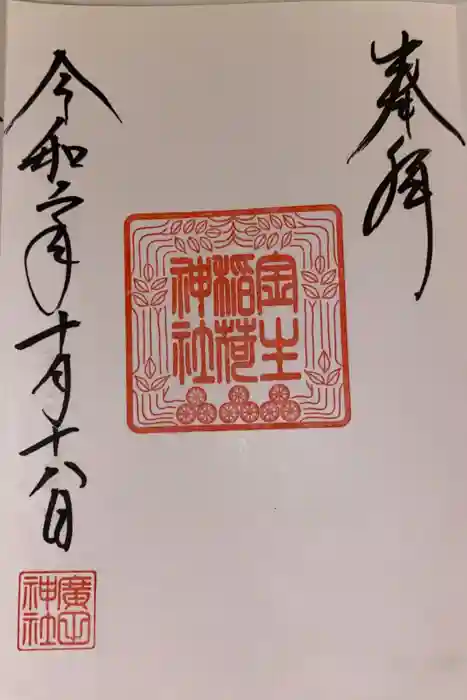 奉拝
金生
稲荷
神社
令和二年十月十八日
廣田
神社